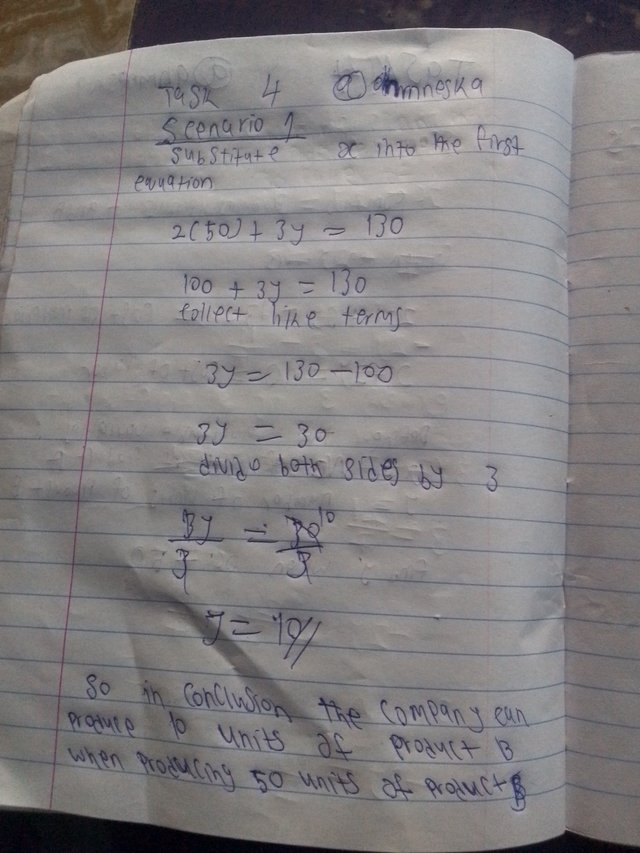 Task 4 @ahmneska
Scenario 1
substitute x into the first
equation
2(50) + 3y = 130
100 + 3y = 130
collect like terms
3y = 130 - 100
3y = 30
divide both sides by 3
3y/3 = 30/3 10
y = 10//
So in conclusion the company can
produce 10 units of product B
when producing 50 units of product